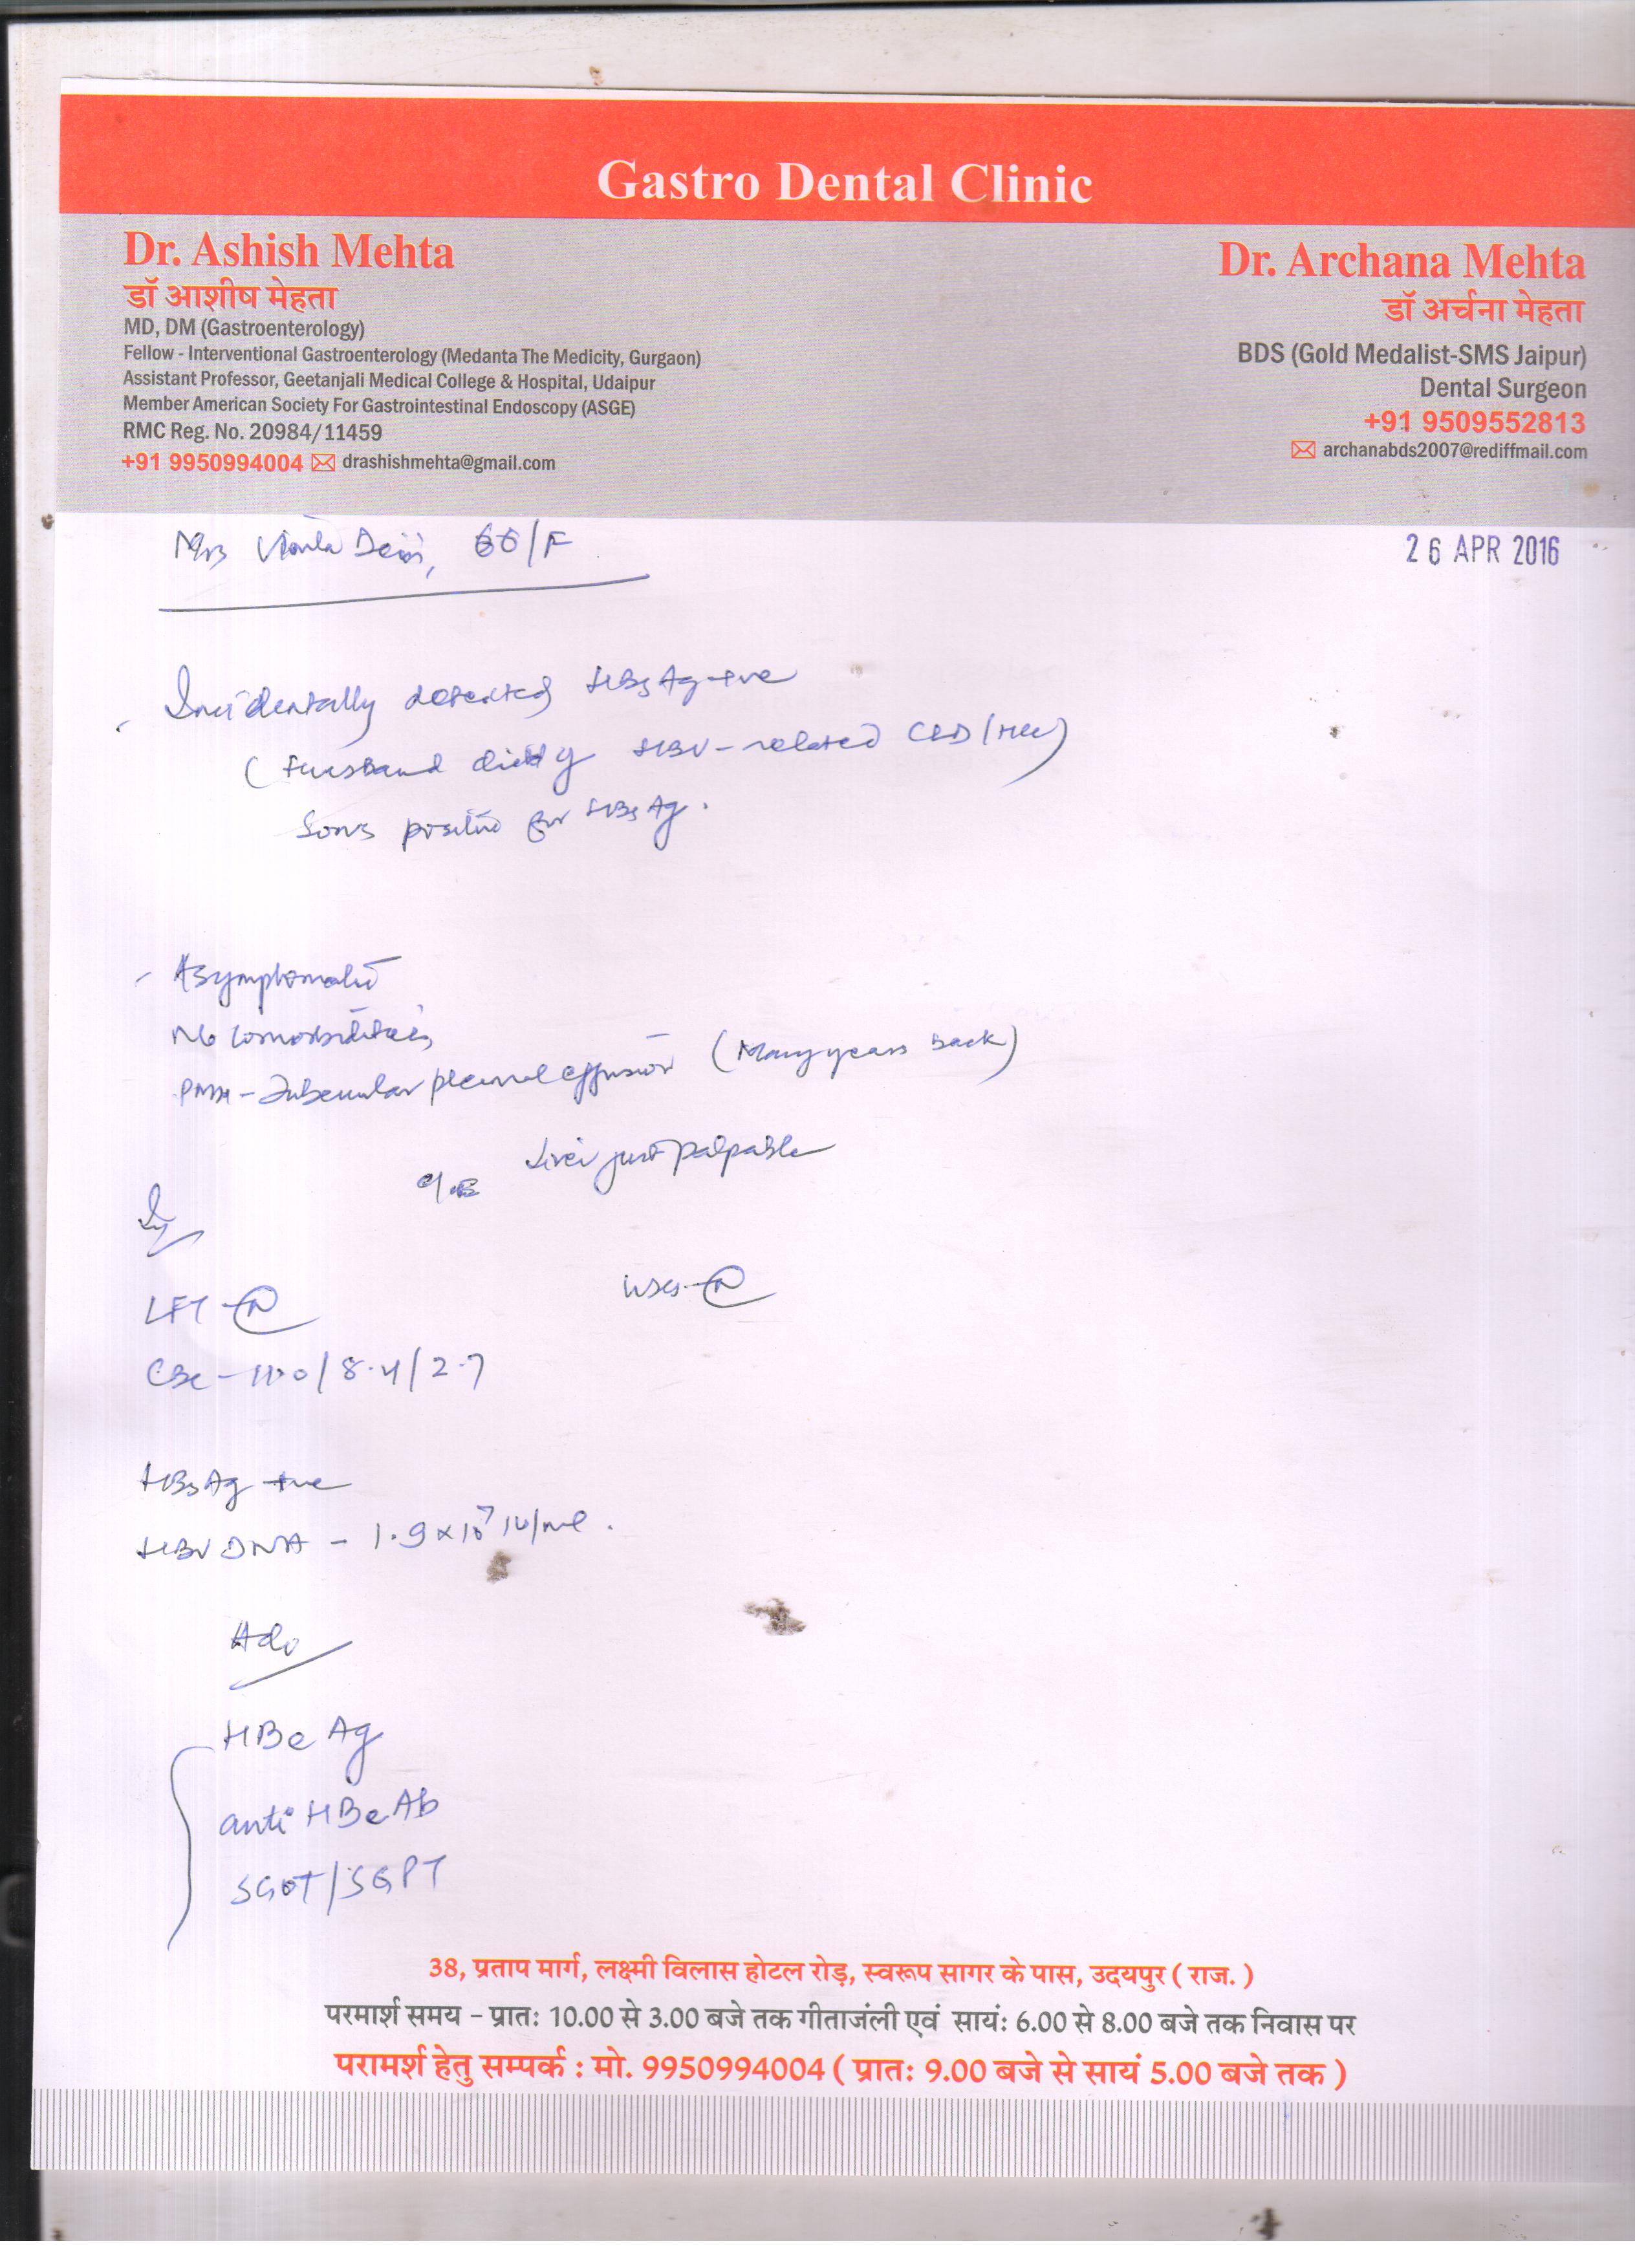 Gastro Dental Clinic
Dr. Ashish Mehta
डॉ आशीष मेहता
MD, DM (Gastroenterology)
Fellow - Interventional Gastroenterology (Medanta The Medicity, Gurgaon)
Assistant Professor, Geetanjali Medical College & Hospital, Udaipur
Member American Society For Gastrointestinal Endoscopy (ASGE)
RMC Reg. No. 20984/11459
+91 9950994004 drashishmehta@gmail.com
Dr. Archana Mehta
डॉ अर्चना मेहता
BDS (Gold Medalist-SMS Jaipur)
Dental Surgeon
+91 9509552813
archanabds2007@rediffmail.com
Mrs Devi, /F
26 APR 2016
Incidentally detected HBsAg +ve
(Husband died of HBV-related CLD/HCC)
Sons positive for HBsAg.
- Asymptomatic
No comorbidities
PMH - Tubercular pleural effusion (Many years back)
O/E Liver just palpable
LFT - (N)
USG - (N)
CBC - /8.4/2.7
HBsAg +ve
HBV DNA - 1.9x10^7 IU/ml.
Adv
HBeAg
anti HBeAb
SGOT/SGPT
38, प्रताप मार्ग, लक्ष्मी विलास होटल रोड़, स्वरूप सागर के पास, उदयपुर ( राज. )
परमार्श समय - प्रातः 10.00 से 3.00 बजे तक गीताजंली एवं सायंः 6.00 से 8.00 बजे तक निवास पर
परामर्श हेतु सम्पर्क : मो. 9950994004 ( प्रातः 9.00 बजे से सायं 5.00 बजे तक )